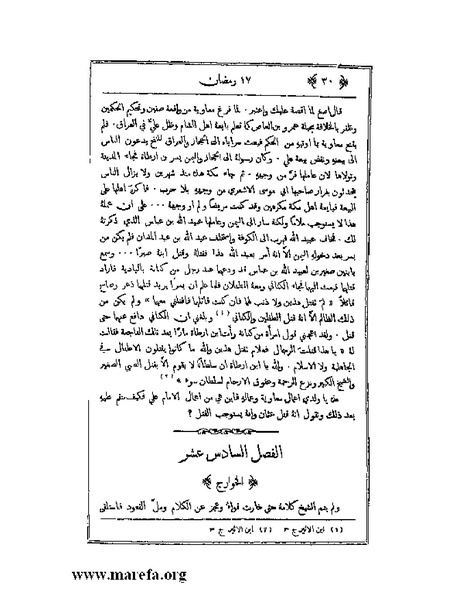 ﴿ ٣٠ ﴾ ١٧ رمضان
قال اصغ لما اقصه عليك واعتبر. لما فرغ معاوية من واقعة صفين وتحكيم الحكمين
وظفر بالخلافة بحيلة عمرو بن العاص كما تعلم بايعه اهل الشام وظل عليّ في العراق. فلم
يقنع معاوية بما اوتيه من الحكم فبعث سراياه الى الحجاز واليمن والعراق للفتح يدعون الناس
الى بيعته ونقض بيعة علي. وكان رسوله الى الحجاز واليمن بسر بن ارطاة فجاء المدينة
وتولاها لان عاملها فرّ من وجهه. ثم جاء مكة منذ شهرين ولا يزال الناس
يتحدثون بفرار صاحبها ابي موسى الاشعري من وجهه بلا حرب. فاكره اهلها على
البيعة فبايعه اهل مكة مكرهين وقد كنت مريضاً ولم ار وجهه ... على ان عمله
هذا لا يستوجب ملاماً ولكنه سار الى اليمن وعاملها عبيد الله بن عباس الذي ذكرته
لك. فخاف عبيد الله فهرب الى الكوفة واستخلف عبد الله بن عبد المدان فلم يكن من
بسر بعد دخوله اليمن الا انه امر بعبد الله هذا فقتله وقتل ابنه صبراً ... وسمع
بابنين صغيرين لعبيد الله بن عباس قد ودعها عند رجل من كنانة بالبادية فاراد
قتلهما فبعث اليهما فجاء الكناني ومعه الطفلان فلما علم ان بسراً يريد قتلهما ذعر وصاح
قائلاً « لمَ تقتل هذين ولا ذنب لهما فان كنت قاتلهما فاقتلني معهما » ولم يكن من
ذلك الظالم الا انه قتل الطفلين والكناني (١) وبلغني ان الكناني دافع عنهما حتى
قتل. ولقد اعجبني قول امرأة من كنانة رأت ابن ارطاة ماراً بعد تلك الفاجعة فقالت
له « يا هذا قتلت الرجال فعلام تقتل هذين والله ما كانوا يقتلون الاطفال في
الجاهلية ولا الاسلام. والله يا ابن ارطاة ان سلطاناً لا يقوم الا بقتل الصبي الصغير
والشيخ الكبير ونزع الرحمة وعقوق الارحام لسلطان سوء » (٢)
هذه يا ولدي اعمال معاوية وعماله فاين هي من اعمال الامام علي فكيف تنقم عليه
بعد ذلك وتقول انه قتل عثمان وانه يستوجب القتل ؟
الفصل السادس عشر
﴿ الخوارج ﴾
ولم يتم الشيخ كلامه حتى خارت قواه وعجز عن الكلام وملّ القعود فاستلقى
(١) ابن الاثير ج ٣ (٢) ابن الاثير ج ٣
www.marefa.org